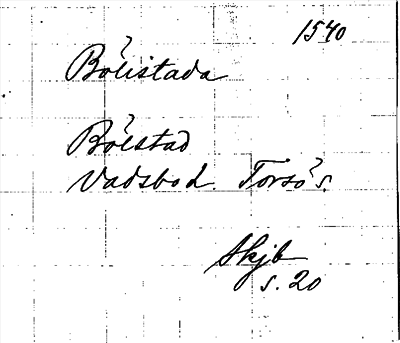 1540
Bölistada
Bölstad
Vadsbod. Torsö s.
Skjb
s. 20